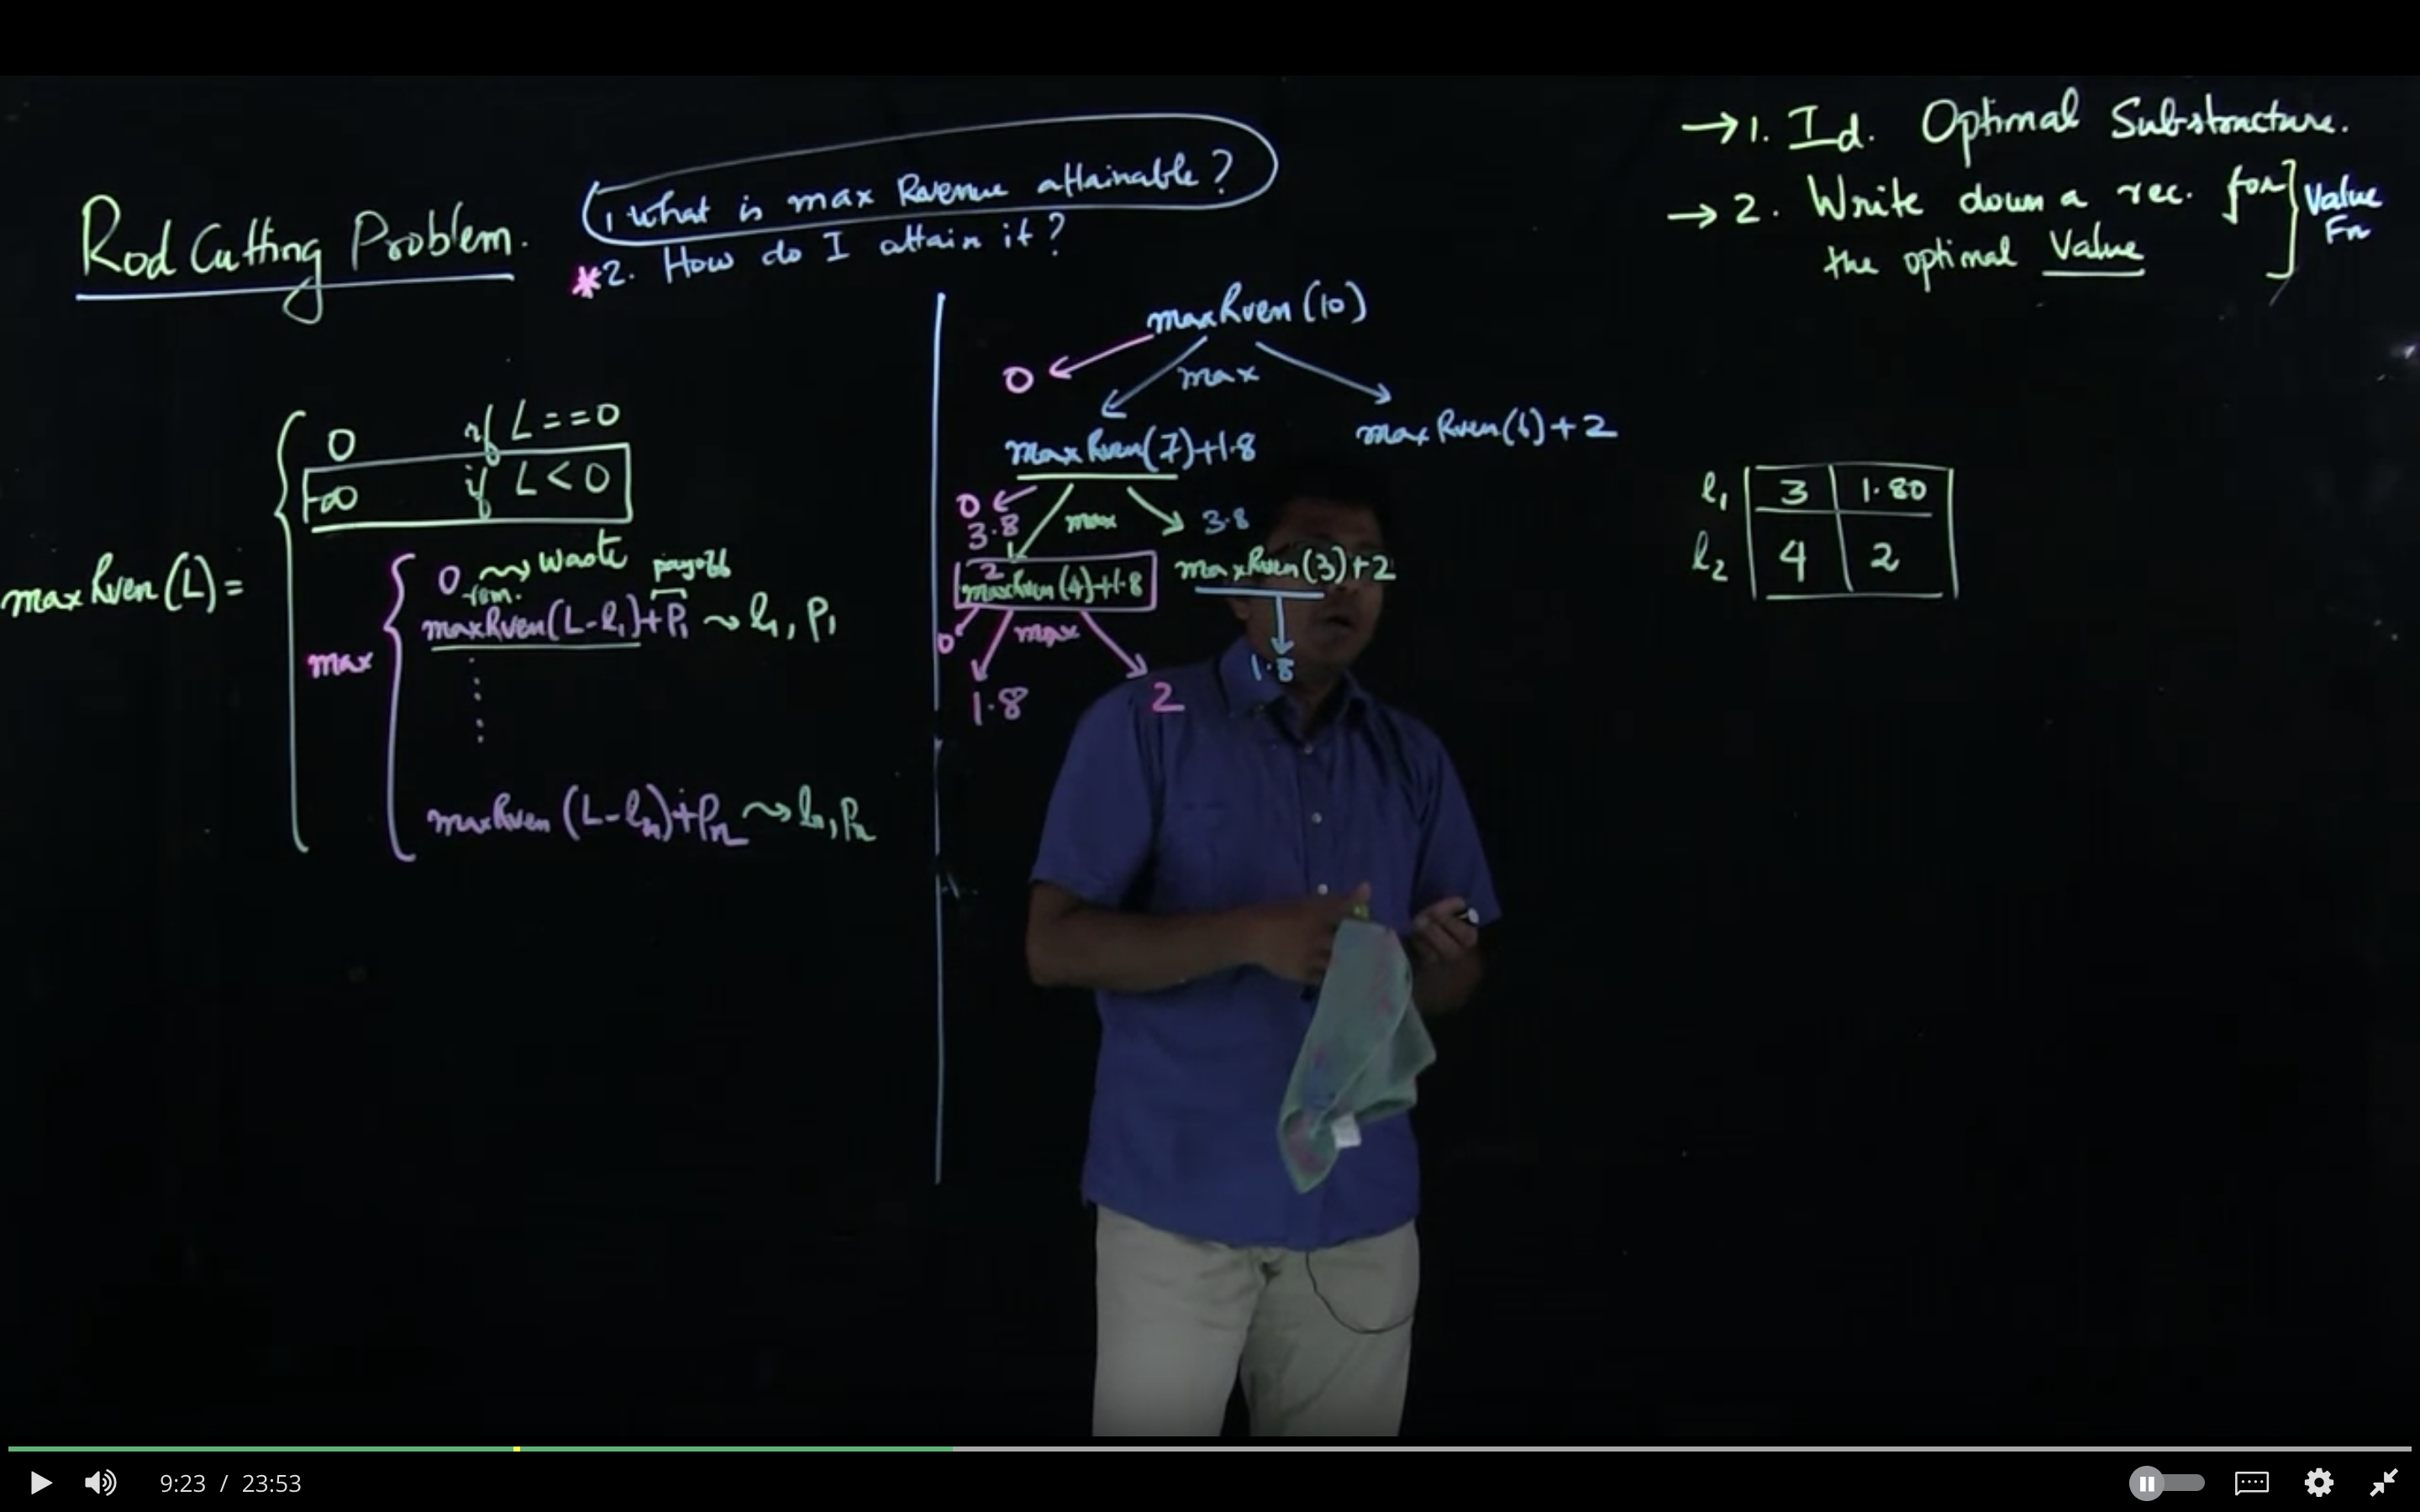 Rod Cutting Problem.
1 What is max Revenue attainable?
*2. How do I attain it?
→ 1. Id. Optimal Substructure.
→ 2. Write down a rec. for
the optimal Value
Value
Fn
maxRven(L) =
0 if L==0
-∞ if L<0
max
0 ~> Waste
rem.
payoff
maxRven(L-l₁)+P₁ ~> l₁, P₁
maxRven (L-lₙ)+Pₙ ~> lₙ, Pₙ
maxRven (10)
0
max
maxRven(7)+1.8
maxRven(6)+2
0
3.8
max
3.8
2
maxRven(4)+1.8
maxRven(3)+2
0
max
1.8
2
1.8
l₁ 3 1.80
l₂ 4 2
9:23 / 23:53